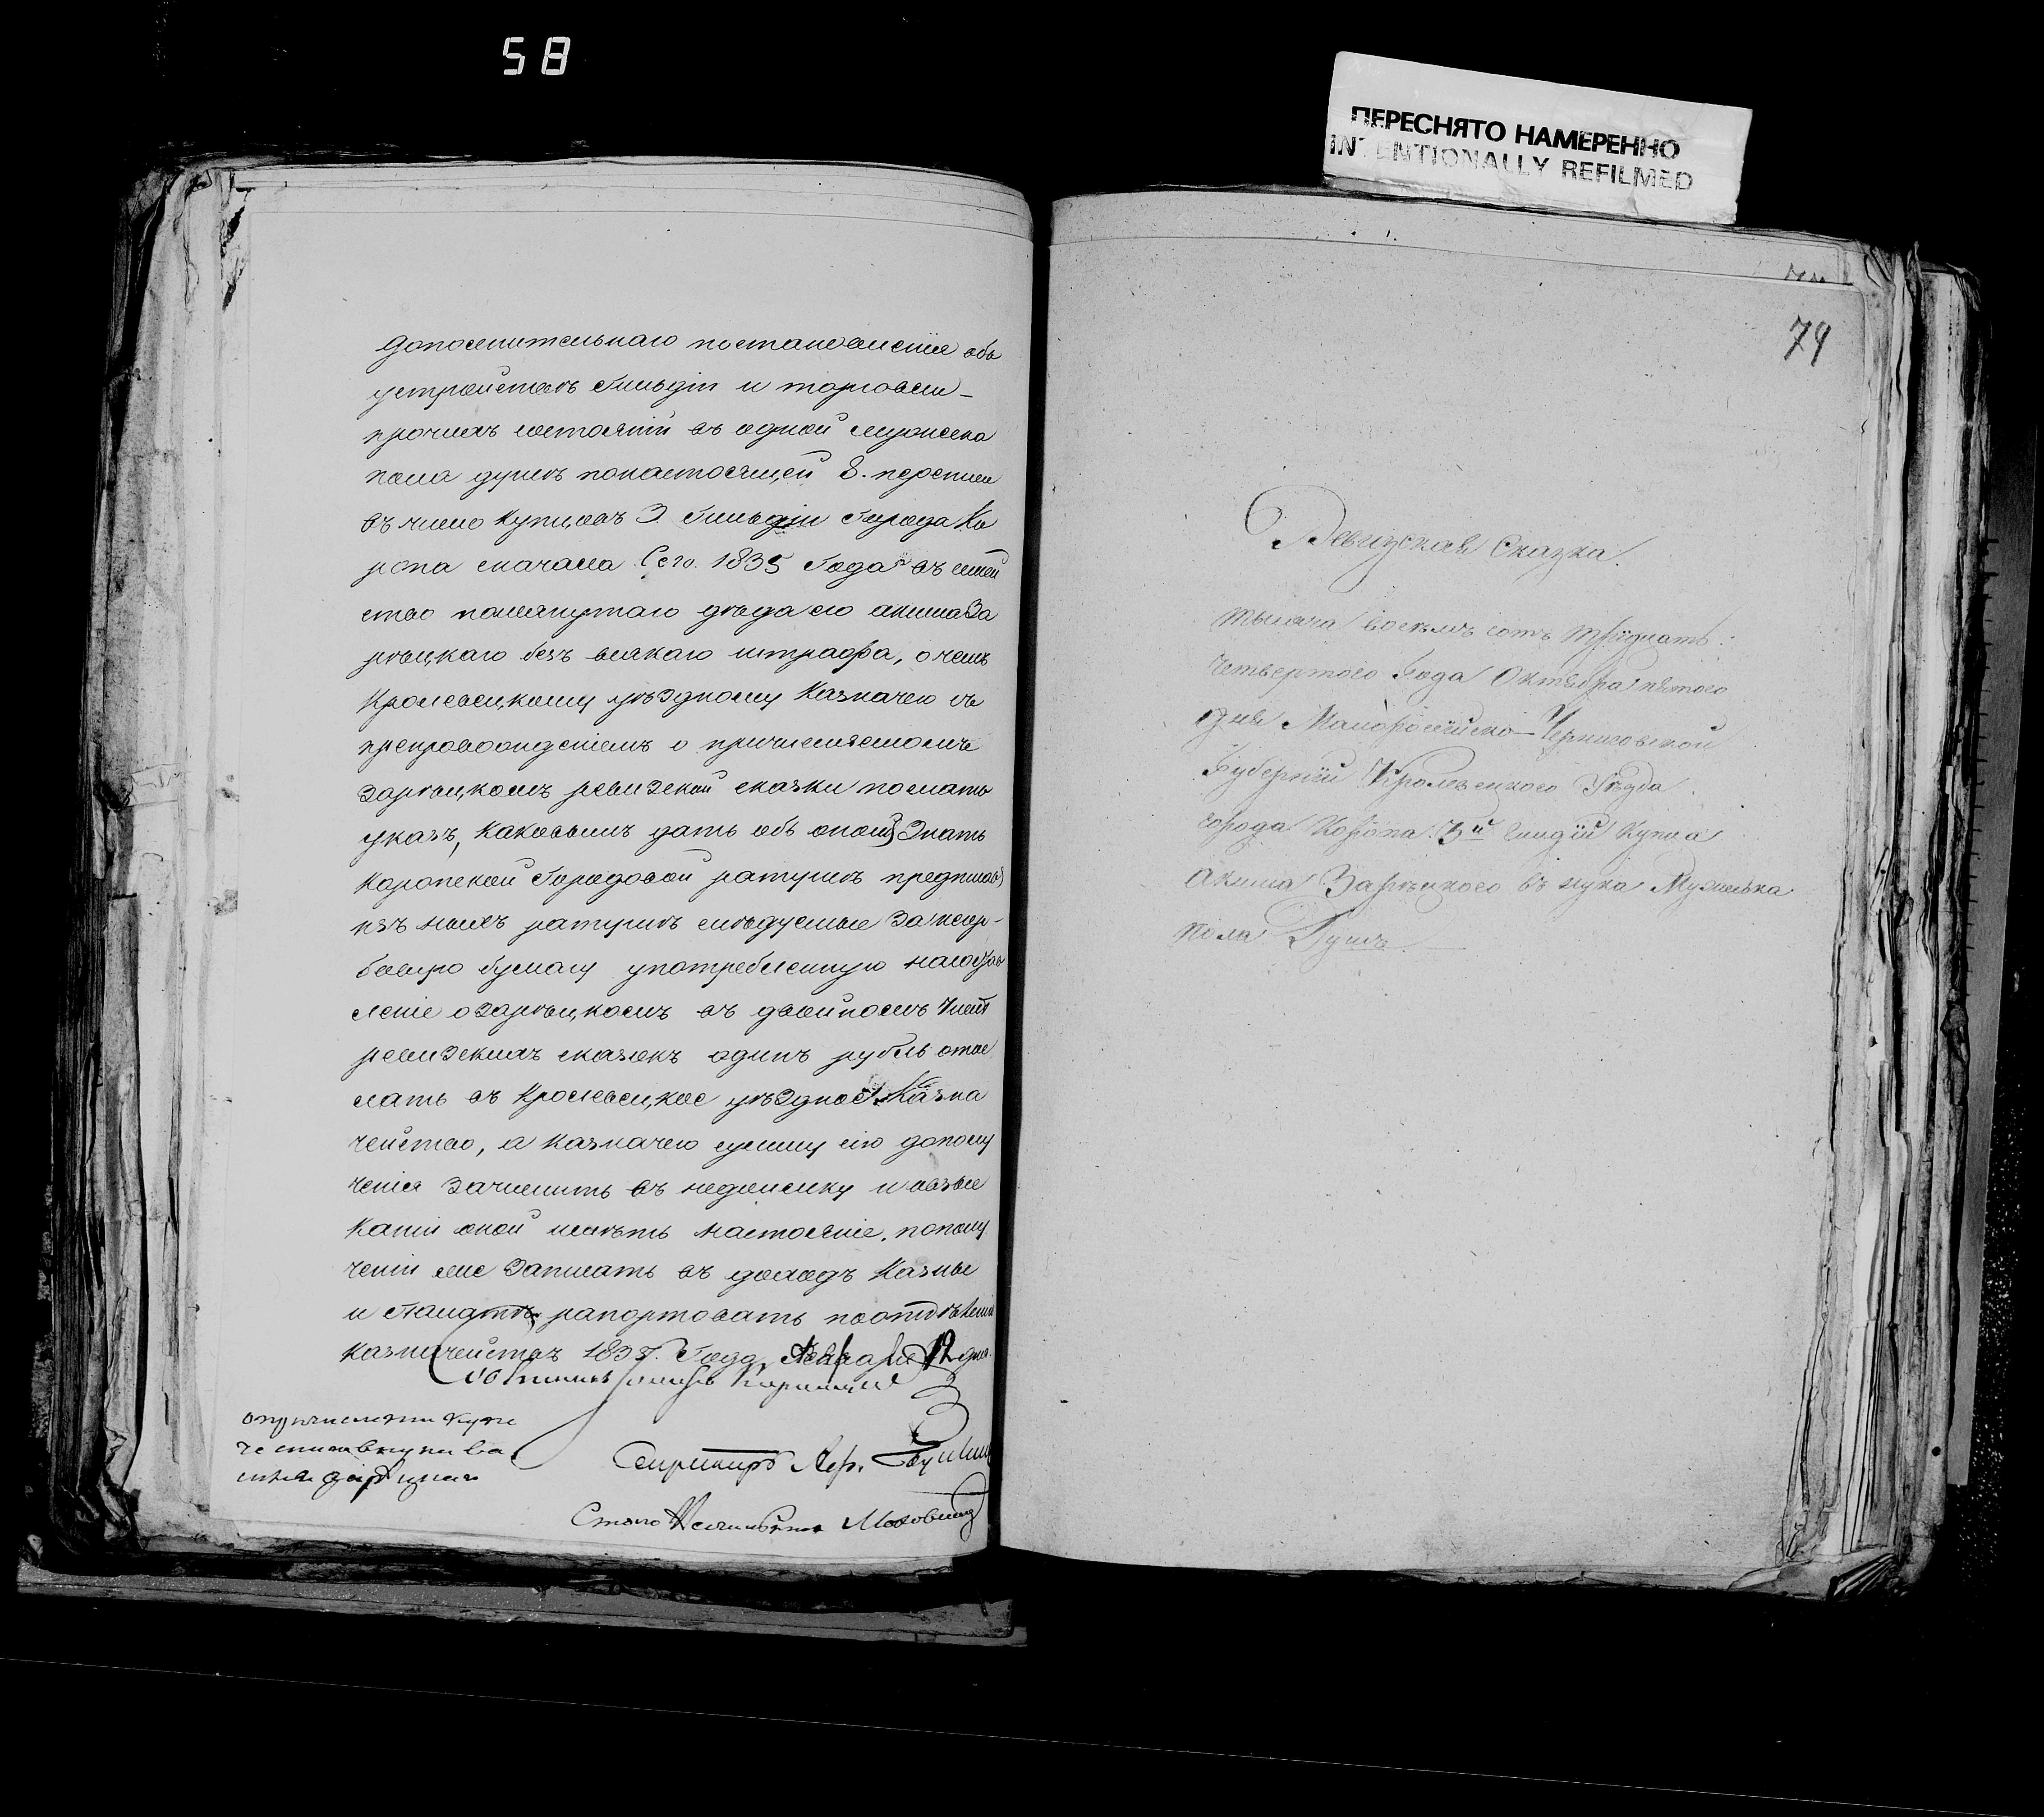 58
ПЕРЕСНЯТО НАМЕРЕННО
INTENTIONALLY REFILMED
дополнительнаго постановленія объ
устройствѣ гильдіи и торговли
прочихъ состояній въ одной мужеска
пола душѣ понастоящей 8. переписи
въ число купцовъ 3 гильдіи Города Ко
ропа сначала Сего 1835 Года въ семей
ство помянутаго дѣда его акима За
рѣцкаго безъ всякаго штрафа, о чемъ
Кролевецкому уѣздному Казначею съ
препровожденіемъ о причисляемомъ
Зарѣцкомъ ревизской сказки послать
указъ, каковымъ дать объ ономъ Знать
Коропской Городовой ратушѣ предписав
ратушѣ слѣдуемые За
бумагу употребленную
леніе о Зарѣцкомъ въ двойномъ
ревизскихъ сказокъ одинъ рубль отос
лать въ Кролевецкое уѣздное Казна
чейство, а казначею сумму сію дополу
ченія Зачислить въ недоимку и взыс
каніи оной имѣть настояніе, пополу
ченіи же Записать въ доходъ Казны
и Палатѣ рапортовать поотдѣленію
казначействъ 1835. Года Февраля 12 дня.
опричислении купе
Секретарь
Столоначальникъ
79
Ревизская Сказка.
тысяча восемь сотъ тридцать
четвертого Года Октября пятого
дня Малоросійско-Черниговской
Губерніи Кролевецкого Уѣзда
города Коропа 3й гилдіи Купца
Акима Зарѣцкого внука Мужеска
пола Душъ.